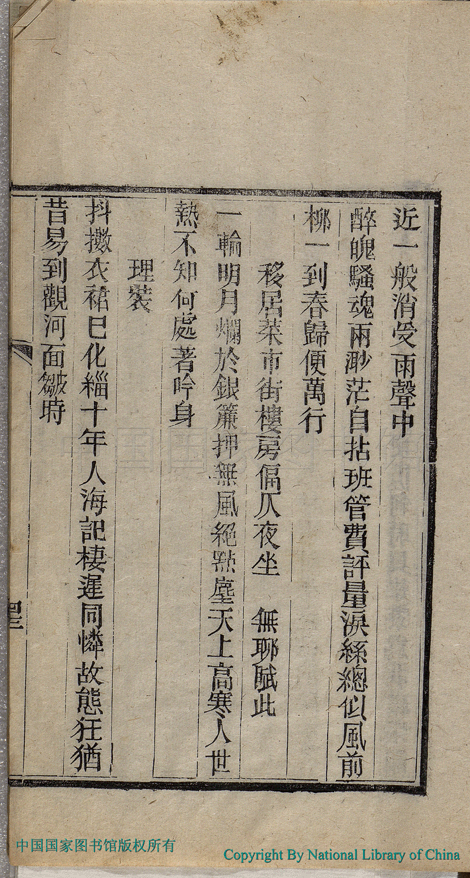 近一般消受雨聲中
醉魄騷魂兩渺茫自拈班管費評量淚絲總似風前
柳一到春歸便萬行
移居菜市街樓房偪仄夜坐 無聊賦此
一輪明月爛於銀簾押無風絕點塵天上高寒人世
熱不知何處著吟身
理裝
抖擻衣裙已化緇十年人海記棲遲同憐故態狂猶
昔易到觀河面皺時
中国国家图书馆版权所有
Copyright By National Library of China